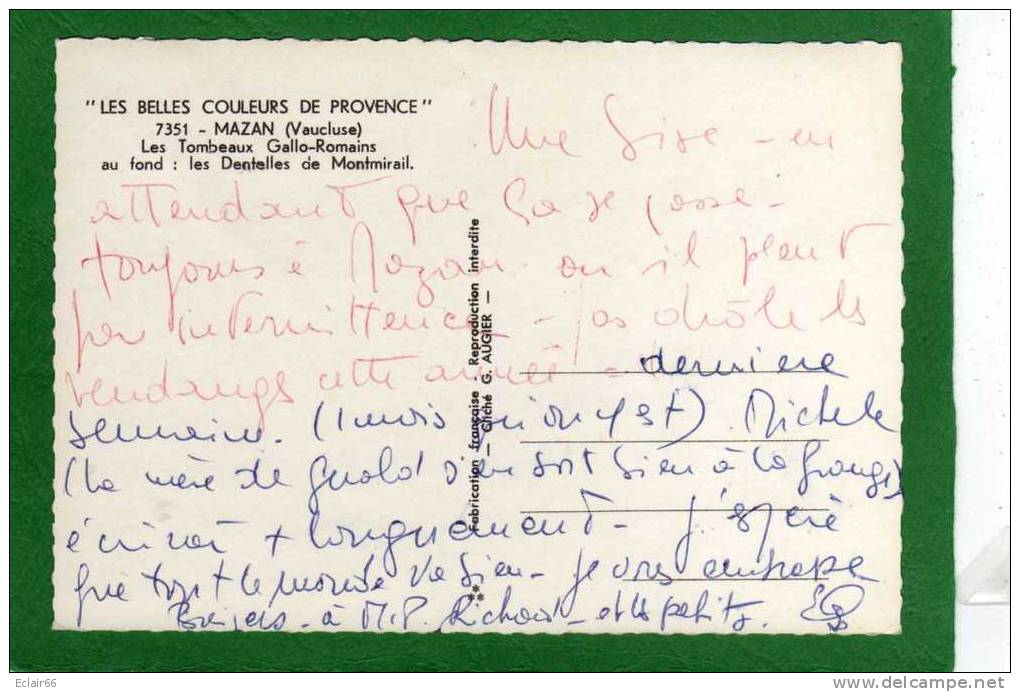 "LES BELLES COULEURS DE PROVENCE"
7351 - MAZAN (Vaucluse)
Les Tombeaux Gallo-Romains
au fond : les Dentelles de Montmirail.
Une bise - en
attendant que ça se passe -
toujours à Mazan où il pleut
par intermittence - pas drôle les
vendanges cette année -
dernière
semaine. (1 mois qu'on y est) Michele
(la mère de s'en sort bien à la grange)
écrirai + longuement - J'espère
que tout le monde va bien - je vous embrasse
Baisers - à M.P. Richard - et les petits.
Fabrication française - Reproduction interdite
— Cliché G. AUGIER —
Eclair66
www.delcampe.net